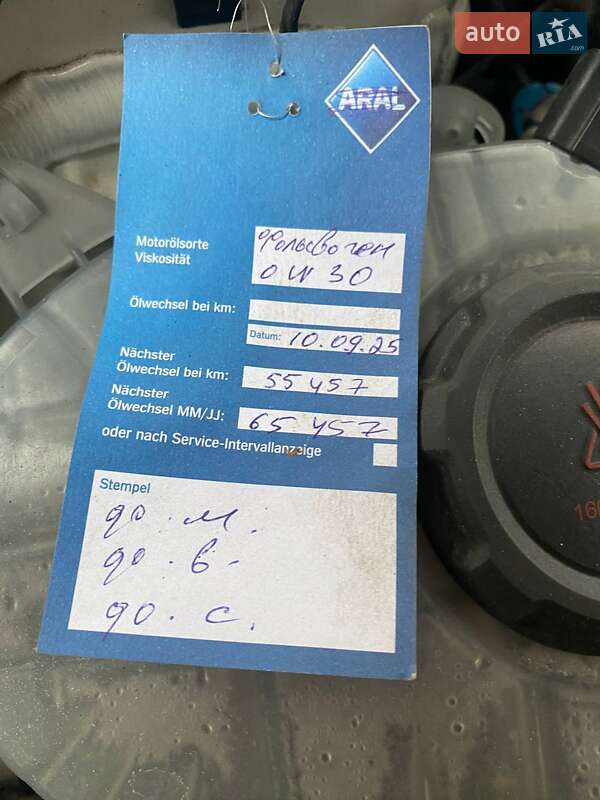 auto RIA.com
ARAL
Motorölsorte
Viskosität
Фольсваген
0W30
Ölwechsel bei km:
Datum: 10.09.25
Nächster
Ölwechsel bei km:
55457
Nächster
Ölwechsel MM/JJ:
65457
oder nach Service-Intervallanzeige
Stempel
ф. м.
ф. в-
ф. с.